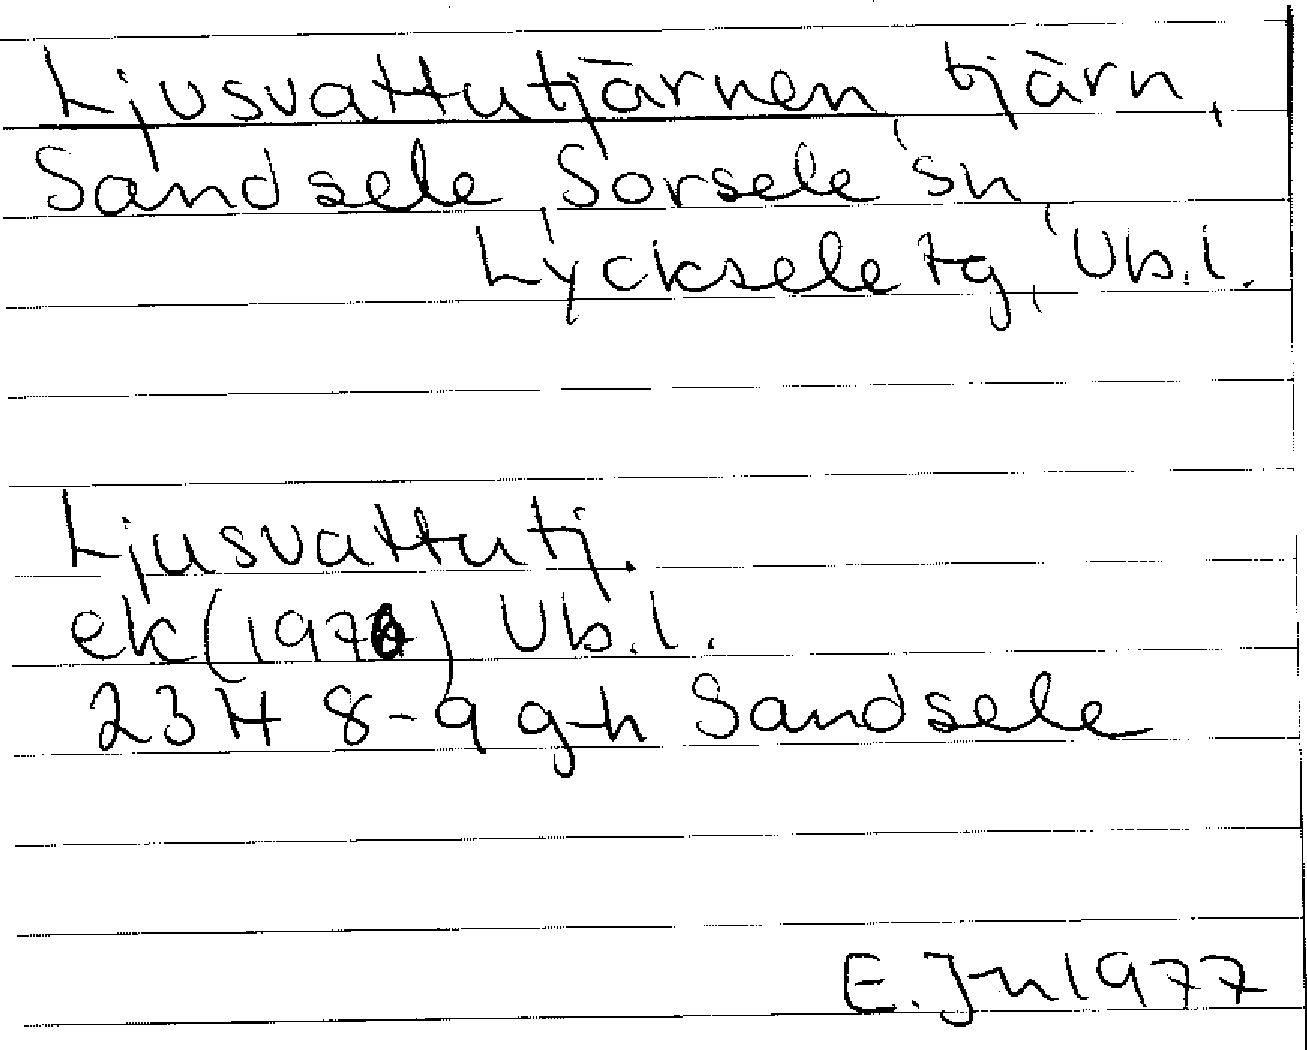 Ljusvattutjärnen tjärn,
Sandsele, Sorsele sn,
Lycksele tg, Vb.l.
Ljusvattutj.
ek (1976) Vb.l.
23H 8-9 g-h Sandsele
E. Jn 1977